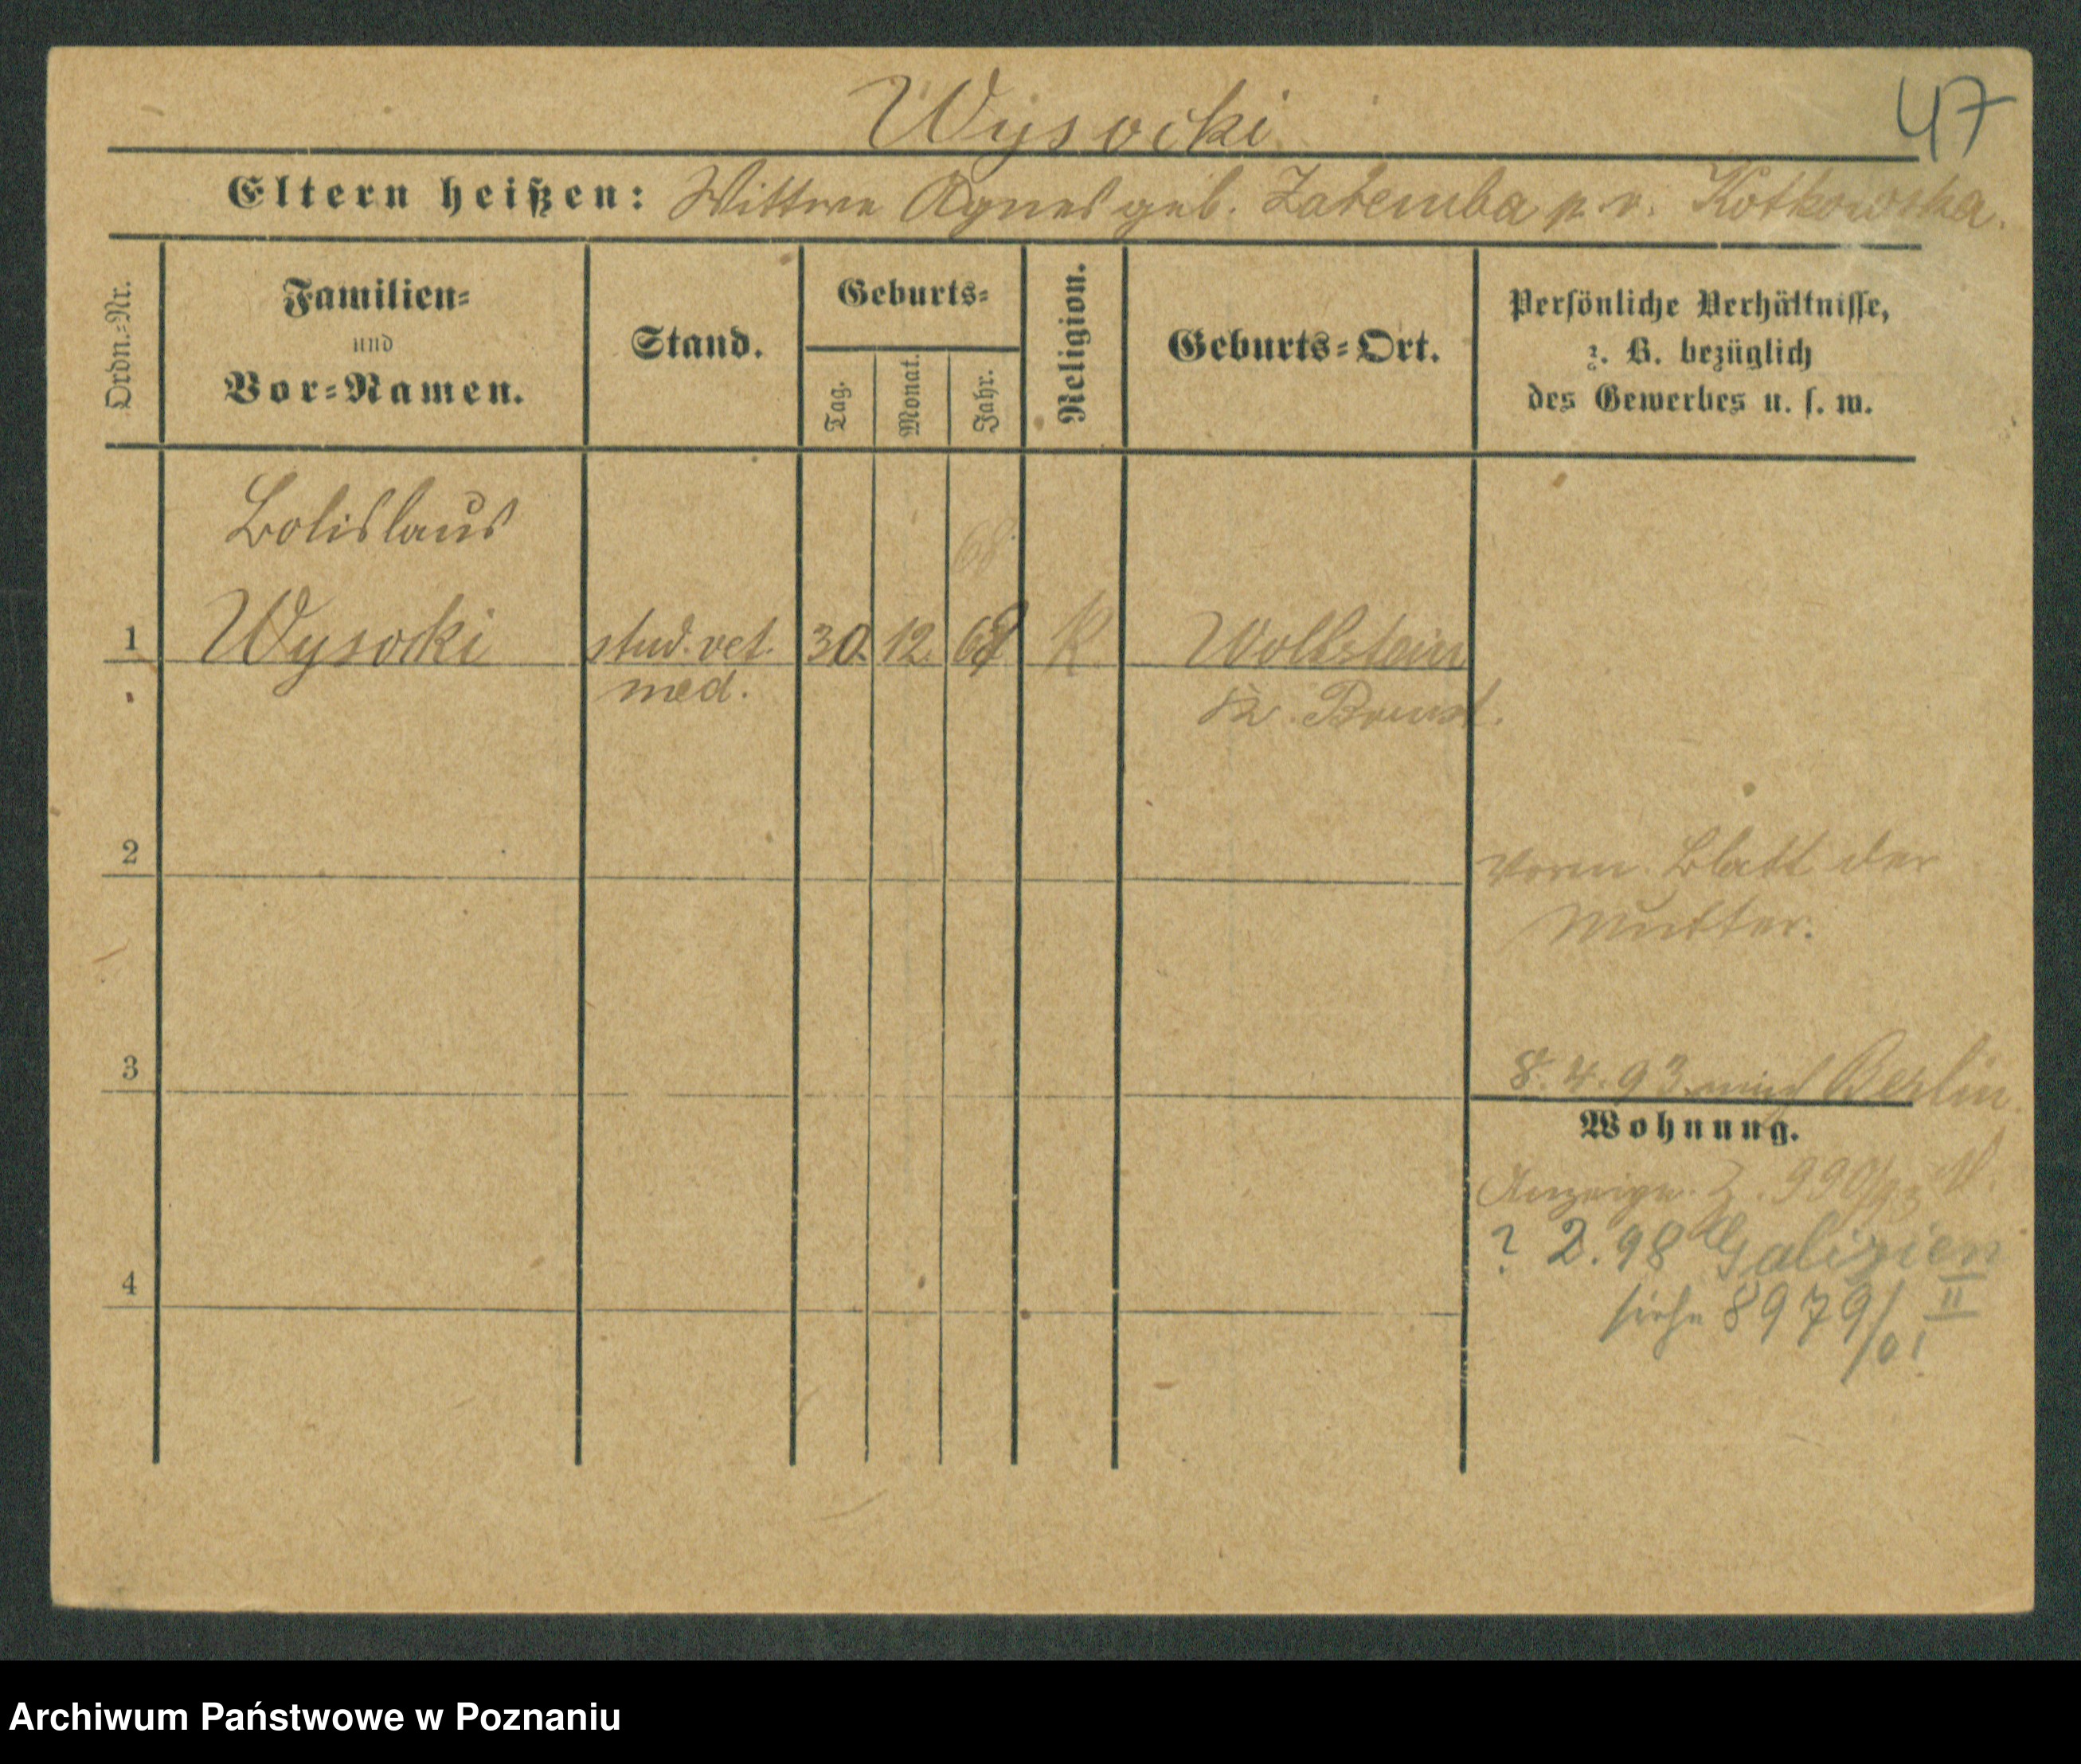 Wysocki
47
Eltern heißen: Wittwe Agnes geb. Zaremba p. v. Kotkowska.
Ordn.-Nr.
Familien-
und
Vor-Namen.
Stand.
Geburts-
Tag.
Monat.
Jahr.
Religion.
Geburts-Ort.
Persönliche Verhältnisse,
z. B. bezüglich
des Gewerbes u. s. w.
Bolislaus
68
1 Wysocki stud. vet. 30. 12. 68 K Wollstein
med. Kr. Bomst.
2
Blatt der
Mutter.
3
8. 4. 93 nach Berlin
Wohnung.
Anzeige
? 2. 98 Galizien
4
siehe 8979/01 II
Archiwum Państwowe w Poznaniu